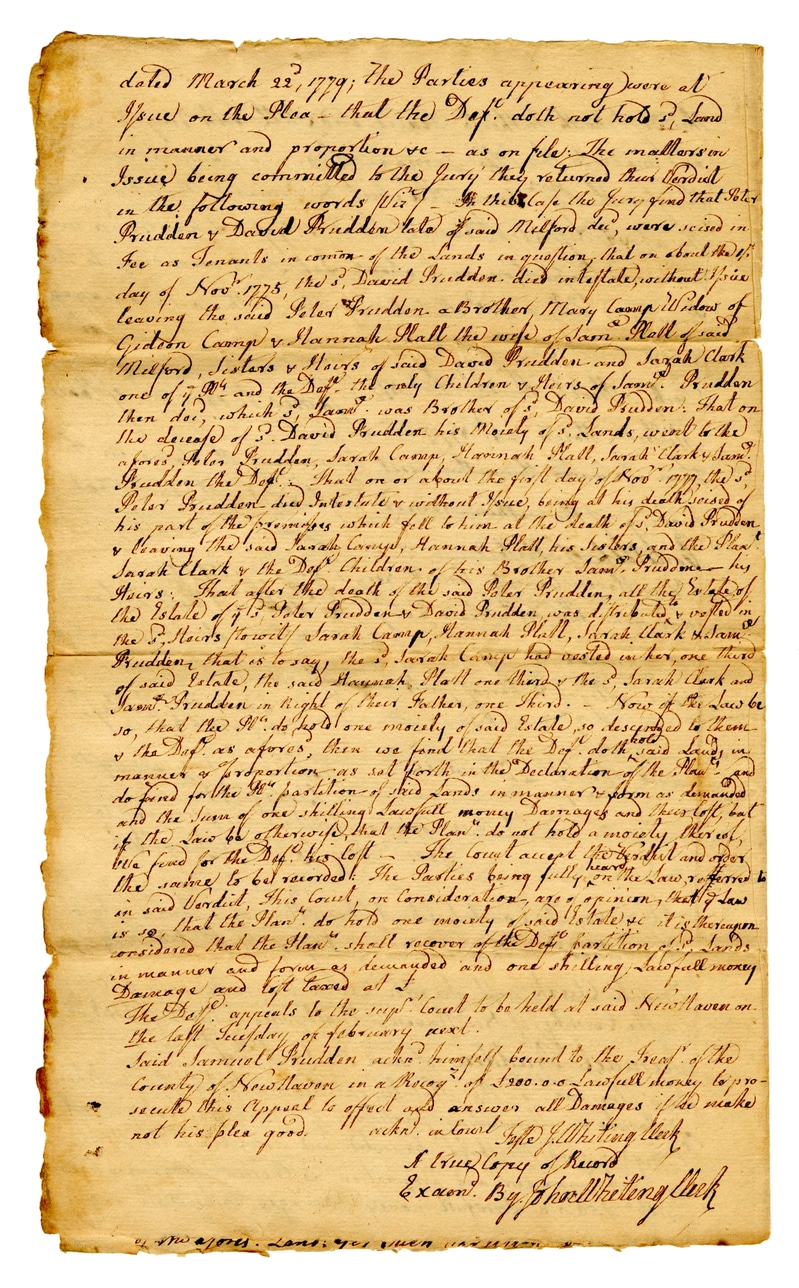 dated March 22d, 1779; the Parties appearing were at
Issue on the Plea – that the Deft. doth not hold sd, Land
in manner and proportion &c – as on file: The matters in
Issue being committed to the Jury they returned their Verdict
in the following words Vizt. – In this Case the Jury find that Peter
Prudden & David Prudden late of said Milford decd, were seised in
Fee as Tenants in common of the Lands in question, that on about the
day of Novr. 1775, the sd, David Prudden died intestate, without Issue
leaving the said Peter Prudden a Brother, Mary Camp Widow of
Gideon Camp & Hannah Platt the wife of Saml. Platt of said
Milford, Sisters & Heirs of said David Prudden and Sarah Clark
one of ye Plts and the Deft. the only Children & Heirs of Saml. Prudden
then decd, which sd, Saml. was Brother of sd, David Prudden. That on
the decease of sd. David Prudden his Moiety of sd. Lands, went to the
aforesd, Peter Prudden, Sarah Camp, Hannah Platt, Sarah Clark & Saml.
Prudden the Deft. That on or about the first day of Novr. 1777, the sd,
Peter Prudden died Intestate & without Issue, being at his death seised of
his part of the premises which fell to him at the death of sd, David Prudden
& leaving the said Sarah Camp, Hannah Platt, his Sisters, and the Plant.
Sarah Clark & the Deft. Children of his Brother Saml. Prudden – his
Heirs: That after the death of the said Peter Prudden, all the Estate of
the Estate of ye sd, Peter Prudden & David Prudden, was distributed to & vested in
the sd, Heirs (to wit) Sarah Camp, Hannah Platt, Sarah Clark & Saml
Prudden, that is to say, the sd, Sarah Camp had vested in her, one third
of said Estate, the said Hannah Platt one third & the sd, Sarah Clark and
Saml. Prudden in Right of their Father, one Third. – Now if the Law be
so, that the Plts. do hold one moiety of said Estate, so descended to them
& the Deft. as aforesd, then we find that the Deft. doth hold said Land, in
manner & proportion as set forth in the Declaration of the Plants. and
do find for the Plts partition of said Lands in manner & form as demanded
and the Sum of one shilling Lawfull money Damages and their Cost, but
if the Law be otherwise, that the Plant. do not hold a moiety thereof,
We find for the Deft. his Cost – The Court accept the Verdict and order
the same to be recorded: The Parties being fully heard on the Law, refferred to
in said Verdict, This Court, on Consideration, are of opinion, that ye Law
is so, that the Plant. do hold one moiety of said Estate &c it is thereupon
considered that the Plant. shall recover of the Deft. partition of sd, Lands
in manner and form as demanded and one shilling, Lawfull money
Damage and Cost taxed at £
The Deft. appeals to the supr. Court to be held at said New Haven on
the last Tuesday of February next.
Said Samuel Prudden acknd. himself bound to the Treasr. of the
County of New Haven in a Recogn. of £200.0.0 Lawfull money to pro-
secute this Appeal to effect and answer all Damages if he make
not his plea good. acknd. in Court Teste J. Whiting Clerk
A true Copy of Record
Examd. By John Whiting Clerk